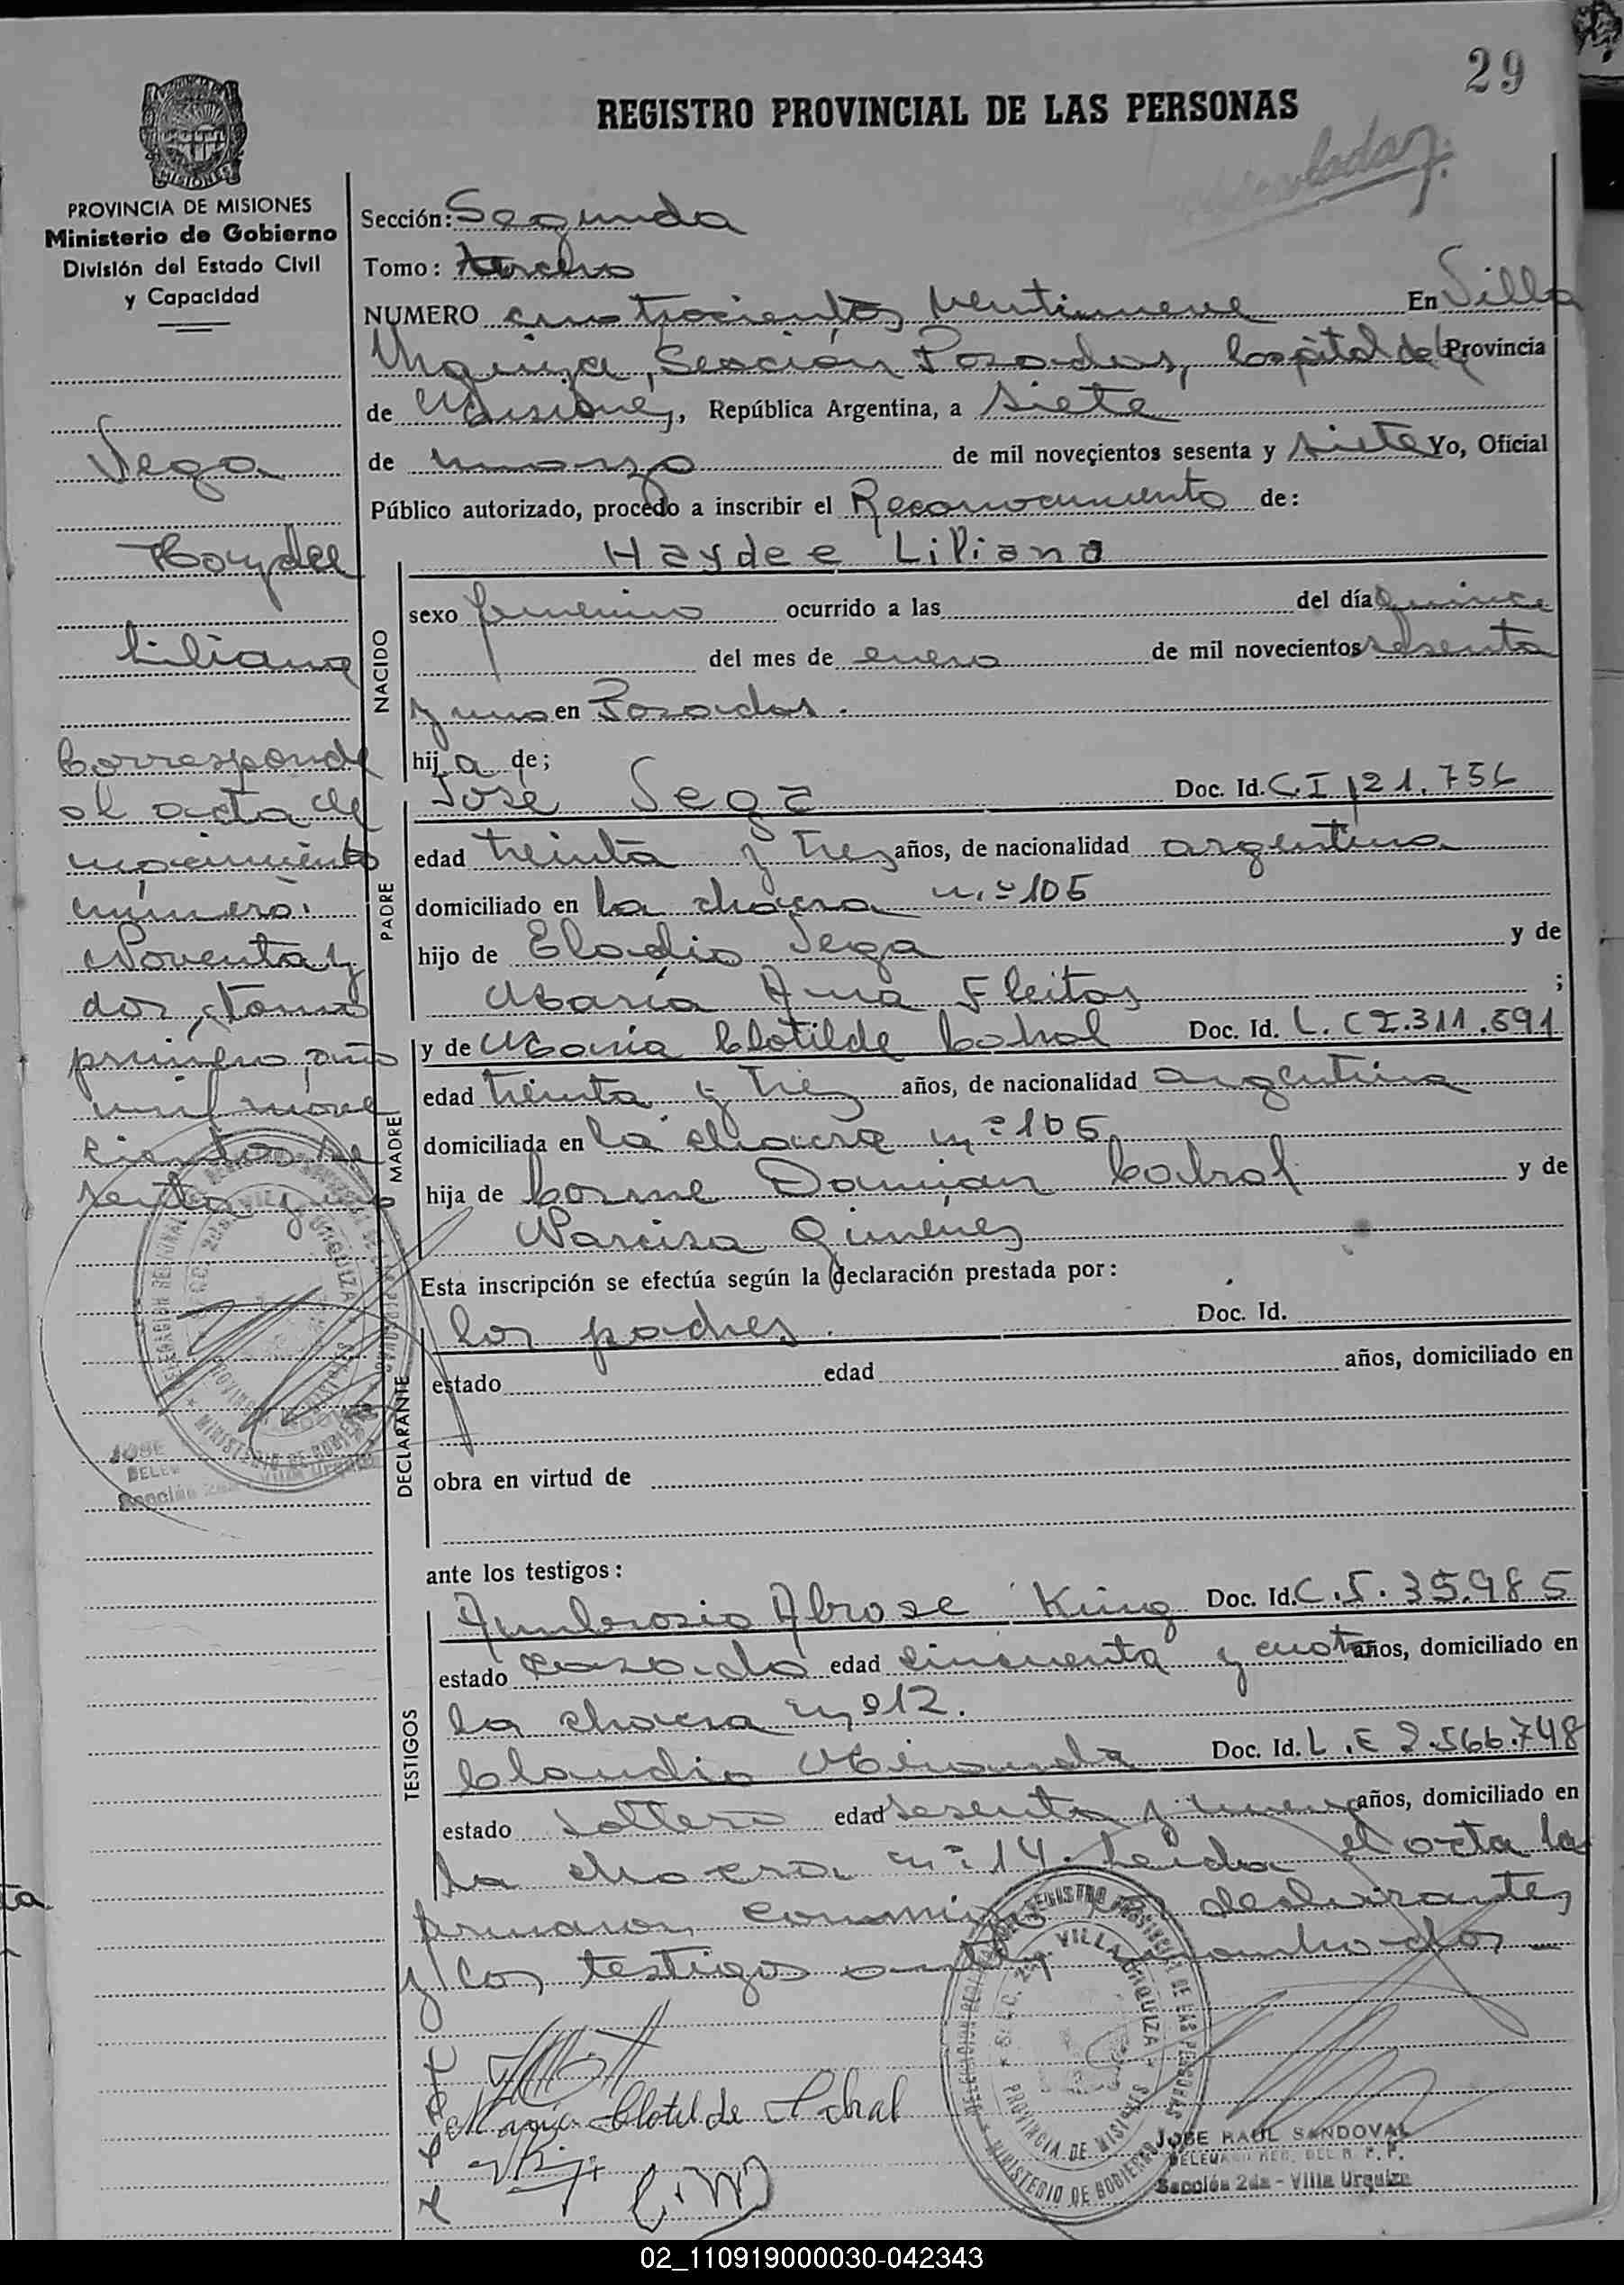 29
REGISTRO PROVINCIAL DE LAS PERSONAS
MISIONES
PROVINCIA DE MISIONES
Ministerio de Gobierno
División del Estado Civil
y Capacidad
Sección: Segunda
Tomo:
NUMERO cuatrocientos Ventinueve En Villa
Urquiza, Sección Posadas, Capital de la Provincia
de Misiones, República Argentina, a siete
de marzo de mil novecientos sesenta y siete Yo, Oficial
Público autorizado, procedo a inscribir el Reconocimiento de:
Haydee Liliana
NACIDO
sexo femenino ocurrido a las del día quince
del mes de enero de mil novecientos sesenta
y uno en Posadas.
hija de;
PADRE
José Vega Doc. Id. C.I 121.756
edad treinta y tres años, de nacionalidad argentina
domiciliado en la chacra n.º 105
hijo de Eladio Vega y de
María Ana Fleitas ;
MADRE
y de María Clotilde Cabral Doc. Id. L. C 2.311.591
edad treinta y tres años, de nacionalidad argentina
domiciliada en la chacra nº 105
hija de Cosme Damian Cabral y de
Narcisa Gimenez
Esta inscripción se efectúa según la declaración prestada por:
DECLARANTE
los padres. Doc. Id.
estado edad años, domiciliado en
obra en virtud de
ante los testigos:
TESTIGOS
Ambrosio Abrose King Doc. Id. C.I. 35.985
estado casado edad cincuenta y cuatro años, domiciliado en
la chacra nº 12.
Claudio Miranda Doc. Id. L.E 2.566.748
estado soltero edad sesenta y nueve años, domiciliado en
la chacra nº 14. Leida el acta la
firmaron conmigo los declarantes
y los testigos antes nombrados
Vega
Haydee
Liliana
Corresponde
al acta de
nacimiento
número:
Noventa y
dos, tomo
primero, año
mil nove
cientos se
senta y uno
JOSE
Sección 2da
Villa Urquiza
Maria Clotilde Cabral
C. M
DELEGACION REGIONAL DEL REGISTRO PROVINCIAL DE LAS PERSONAS
SECC. 2da. VILLA URQUIZA
PROVINCIA DE MISIONES
MINISTERIO DE GOBIERNO
JOSE RAUL SANDOVAL
DELEGADO REG. DEL R. P. P.
Sección 2da - Villa Urquiza
02_110919000030-042343